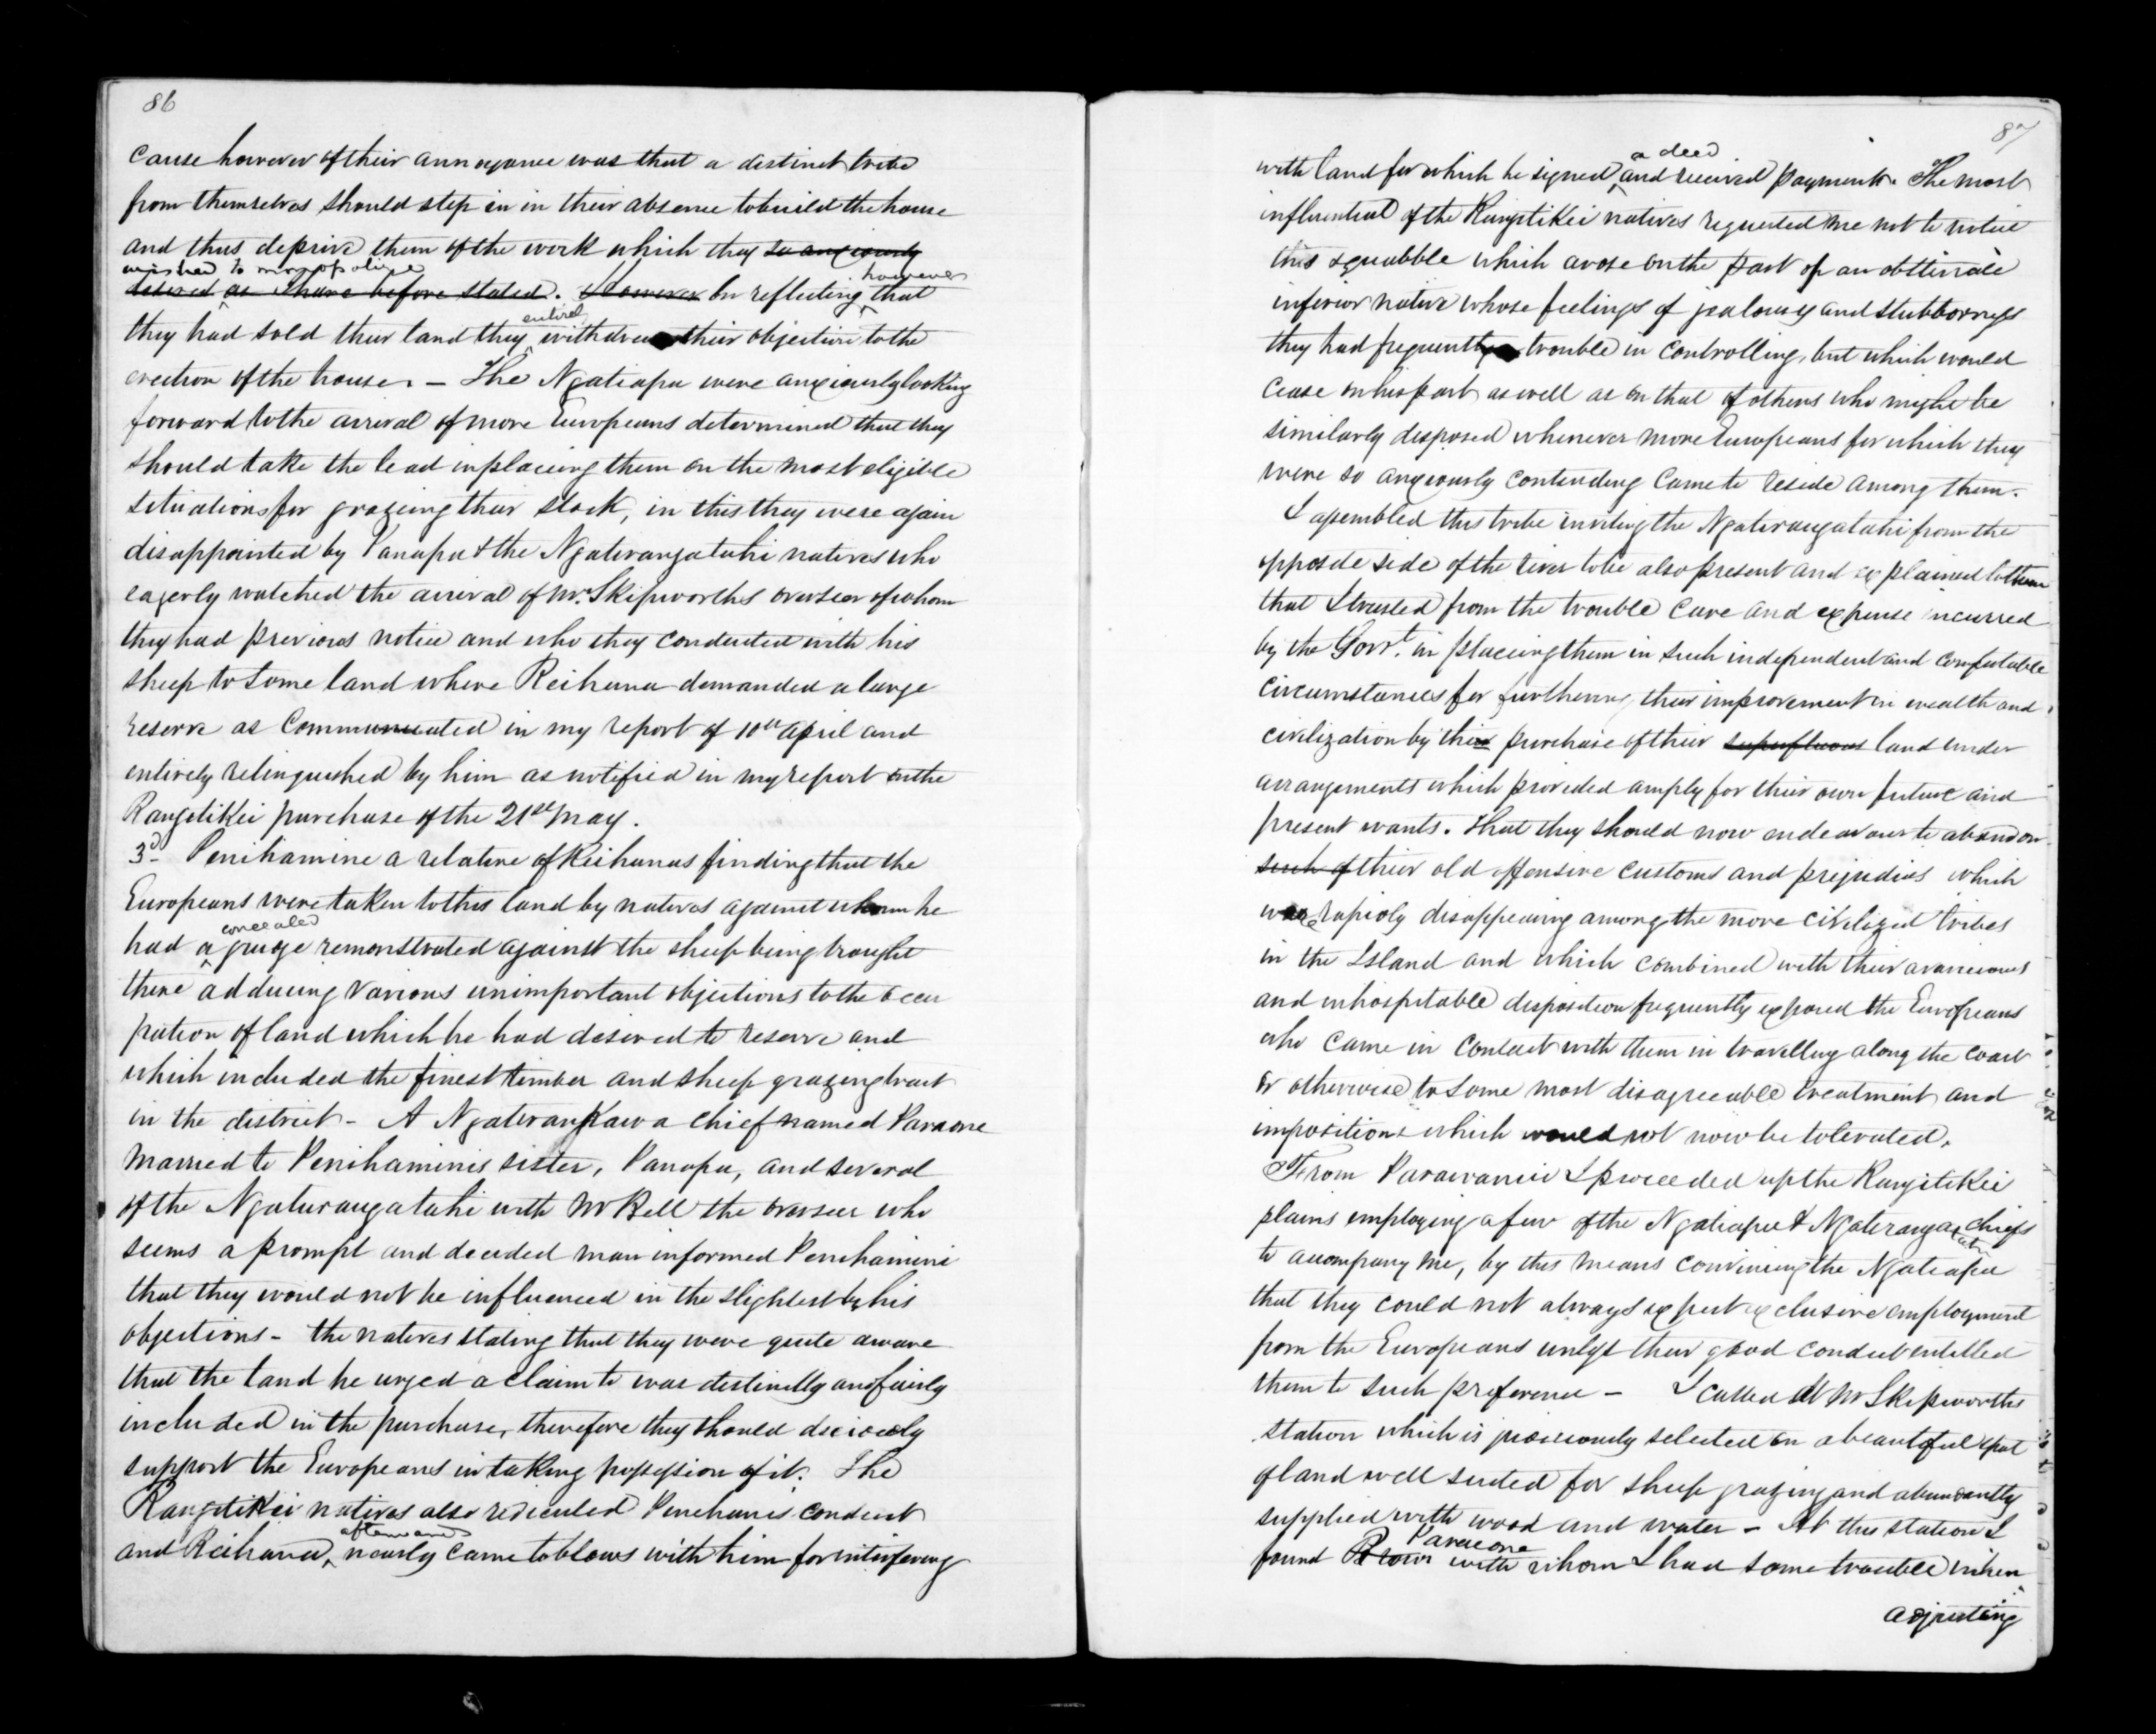 86
cause however of their annoyance was that a distinct tribe
from themselves should step in in their absence to build the house
and thus deprive them of the work which they so anxiously
wished to monopolize however
desired as I have before stated. However on reflecting that
entirely
they had sold their land they withdrew their objection to the
erection of the house. — The Ngatiapa were anxiously looking
forward to the arrival of more Europeans determined that they
should take the lead in placing them on the most eligible
situations for grazing their stock, in this they were again
disappointed by Panapa & the Ngatirangatahi natives who
eagerly watched the arrival of Mr. Skipworths overseer of whom
they had previous notice and who they conducted with his
sheep to some land where Reihana demanded a large
reserve as Communicated in my report of 10th April and
entirely relinquished by him as notified in my report on the
Rangitikei purchase of the 21st May.
3d- Penihamine a relative of Reihanas finding that the
Europeans were taken to this land by natives against whom he
concealed
had a grudge remonstrated against the sheep being brought
there adducing various unimportant objections to the occu
pation of land which he had desired to reserve and
which included the finest timber and sheep grazing tract
in the district - A Ngatiraukawa chief named Paraone
married to Penihaminis sister, Panapa, and several
of the Ngatirangatahi with Mr Bell the overseer who
seems a prompt and decided man informed Penihamini
that they would not be influenced in the slightest by his
objections - the natives stating that they were quite aware
that the land he urged a claim to was distinctly and fairly
included in the purchase, therefore they should decidedly
support the Europeans in taking possession of it. The
Rangitikei natives also ridiculed Penehamis conduct
afterwards
and Reihana nearly came to blows with him for interfering
87
a deed
with land for which he signed and received payment. The most
influential of the Rangitikei natives requested me not to notice
this squabble which arose on the part of an obstinate
inferior native whose feelings of jealousy and stubborness
they had frequently trouble in controlling, but which would
cease on his part as well as on that of others who might be
similarly disposed whenever more Europeans for which they
were so anxiously contending came to reside among them.
I assembled this tribe inviting the Ngatirangatahi from the
opposite side of the river to be also present and explained to them
that I trusted from the trouble care and expense incurred
by the Govt. in placing them in such independent and comfortable
circumstances for furthering their improvement in wealth and
civilization by their purchase of their superfluous land under
arrangements which provided amply for their own future and
present wants. That they should now endeavour to abandon
such of their old offensive customs and prejudices which
were rapidly disappearing among the more civilized tribes
in the Island and which combined with their avaricious
and inhospitable disposition frequently exposed the Europeans
who came in contact with them in travelling along the coast
or otherwise to some most disagreeable treatment and
impositions which would not now be tolerated.
From Parawanui I proceeded up the Rangitikei
plains employing a few of the Ngatiapa & Ngateranga chiefs
tahi
to accompany me, by this means convincing the Ngatiapa
that they could not always expect exclusive employment
from the Europeans unless their good conduct entitled
them to such preference — I called at Mr Skipworths
station which is judiciously selected on a beautiful spot
of land well suited for sheep grazing and abundantly
supplied with wood and water - At this station I
Paraone
found Brown with whom I had some trouble when
adjusting